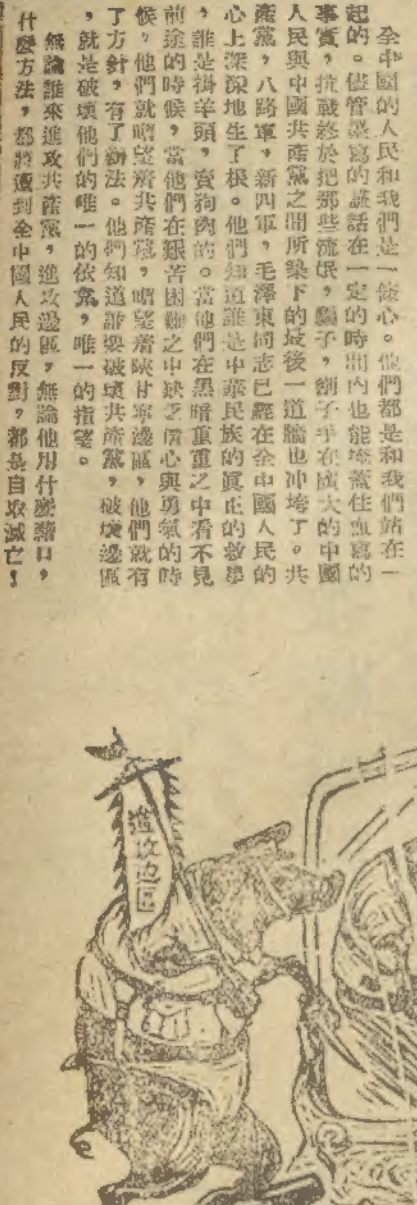 全中國的人民和我們是一條心。他們都是和我們站在一
起的。儘管墨寫的謊話在一定的時間內也能掩蓋住血寫的
事實，抗戰終於把那些流氓，騙子，劊子手在廣大的中國
人民與中國共產黨之間所築下的最後一道牆也冲垮了。共
產黨，八路軍，新四軍，毛澤東同志已經在全中國人民的
心上深深地生了根。他們知道誰是中華民族的眞正的救星
，誰是掛羊頭，賣狗肉的。當他們在黑暗重重之中看不見
前途的時候，當他們在艱苦困難之中缺乏信心與勇氣的時
候，他們就瞻望着共產黨，瞻望着陝甘寧邊區，他們就有
了方針，有了辦法。他們知道誰要破壞共產黨，破壞邊區
，就是破壞他們的唯一的依靠，唯一的指望。
無論誰來進攻共產黨，進攻邊區，無論他用什麼藉口，
什麼方法，都將遭到全中國人民的反對，都是自取滅亡！
進攻边区